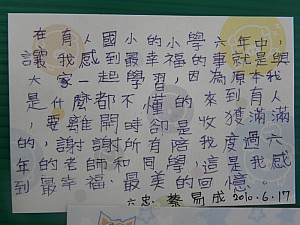 在有人國小的小學六年中,
讓我感到最幸福的事就是與
大家一起學習,因為原本我
是什麼都不懂的來到有人
,要離開時卻是收獲滿滿
的,謝謝所有陪我度過六
年的老師和同學,這是我感
到最幸福、最美的回憶。
六忠 蔡易成 2010.6.17